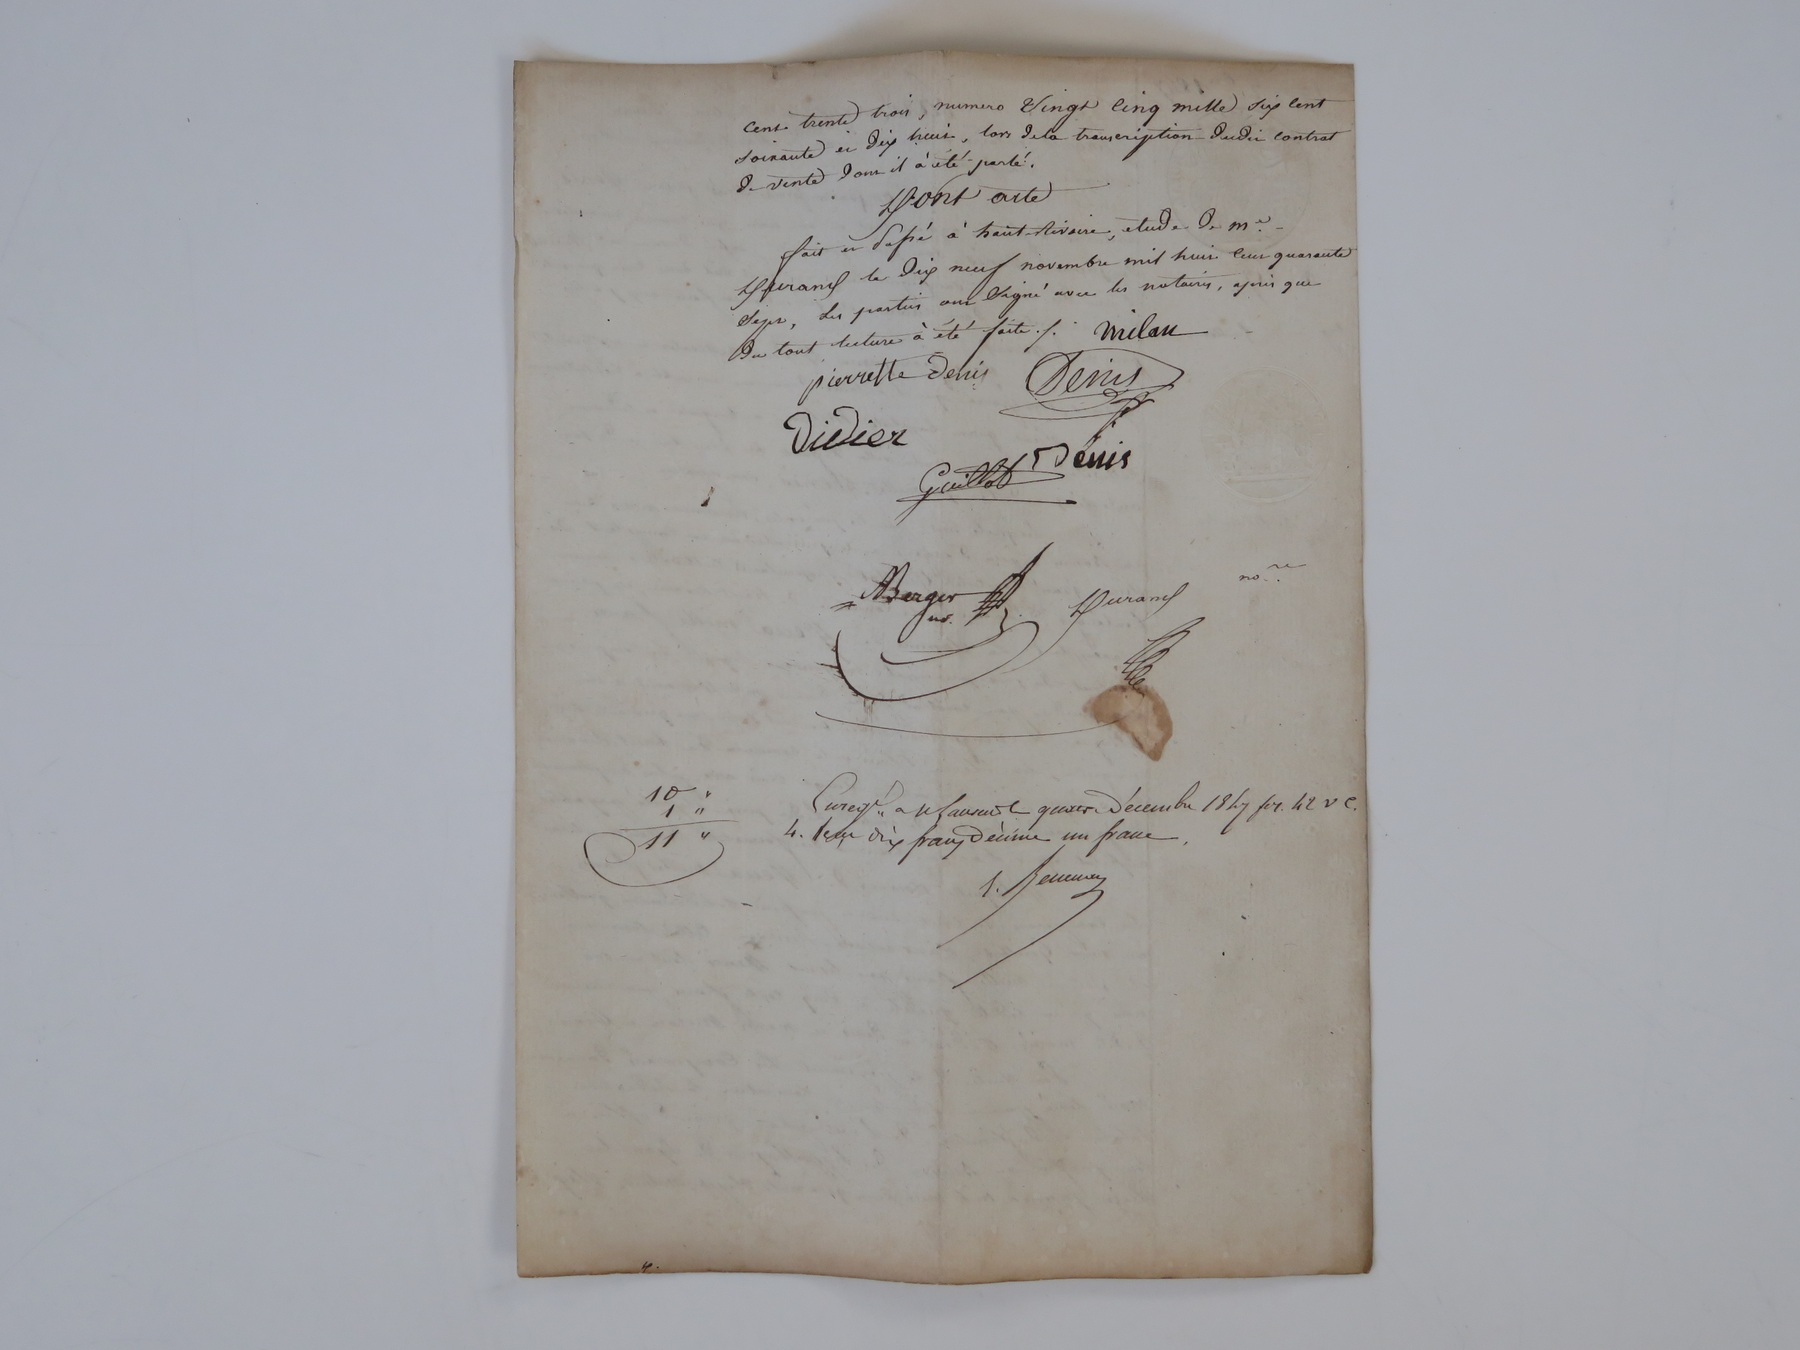 cent trente trois, numero Vingt Cinq mille six cent
soixante et dix huit, lors de la transcription dudit contrat
de vente dont il à été parlé.
Dont acte
fait et passé à haut-Rivoire, étude de me.
Durand le dix neuf novembre mil huit cent quarante
Sept, Les parties ont Signé avec les notaires, après que
du tout lecture à été faite ./. milan
pierrette Denis Denis
Didier
Guillot Denis
Berger
no. Durand no.re
10 "
1 "
11 "
Enregé. a St Laurent le quatre Décembre 1847 fo. 42 v C.
4. Reçu dix francs décime un franc.